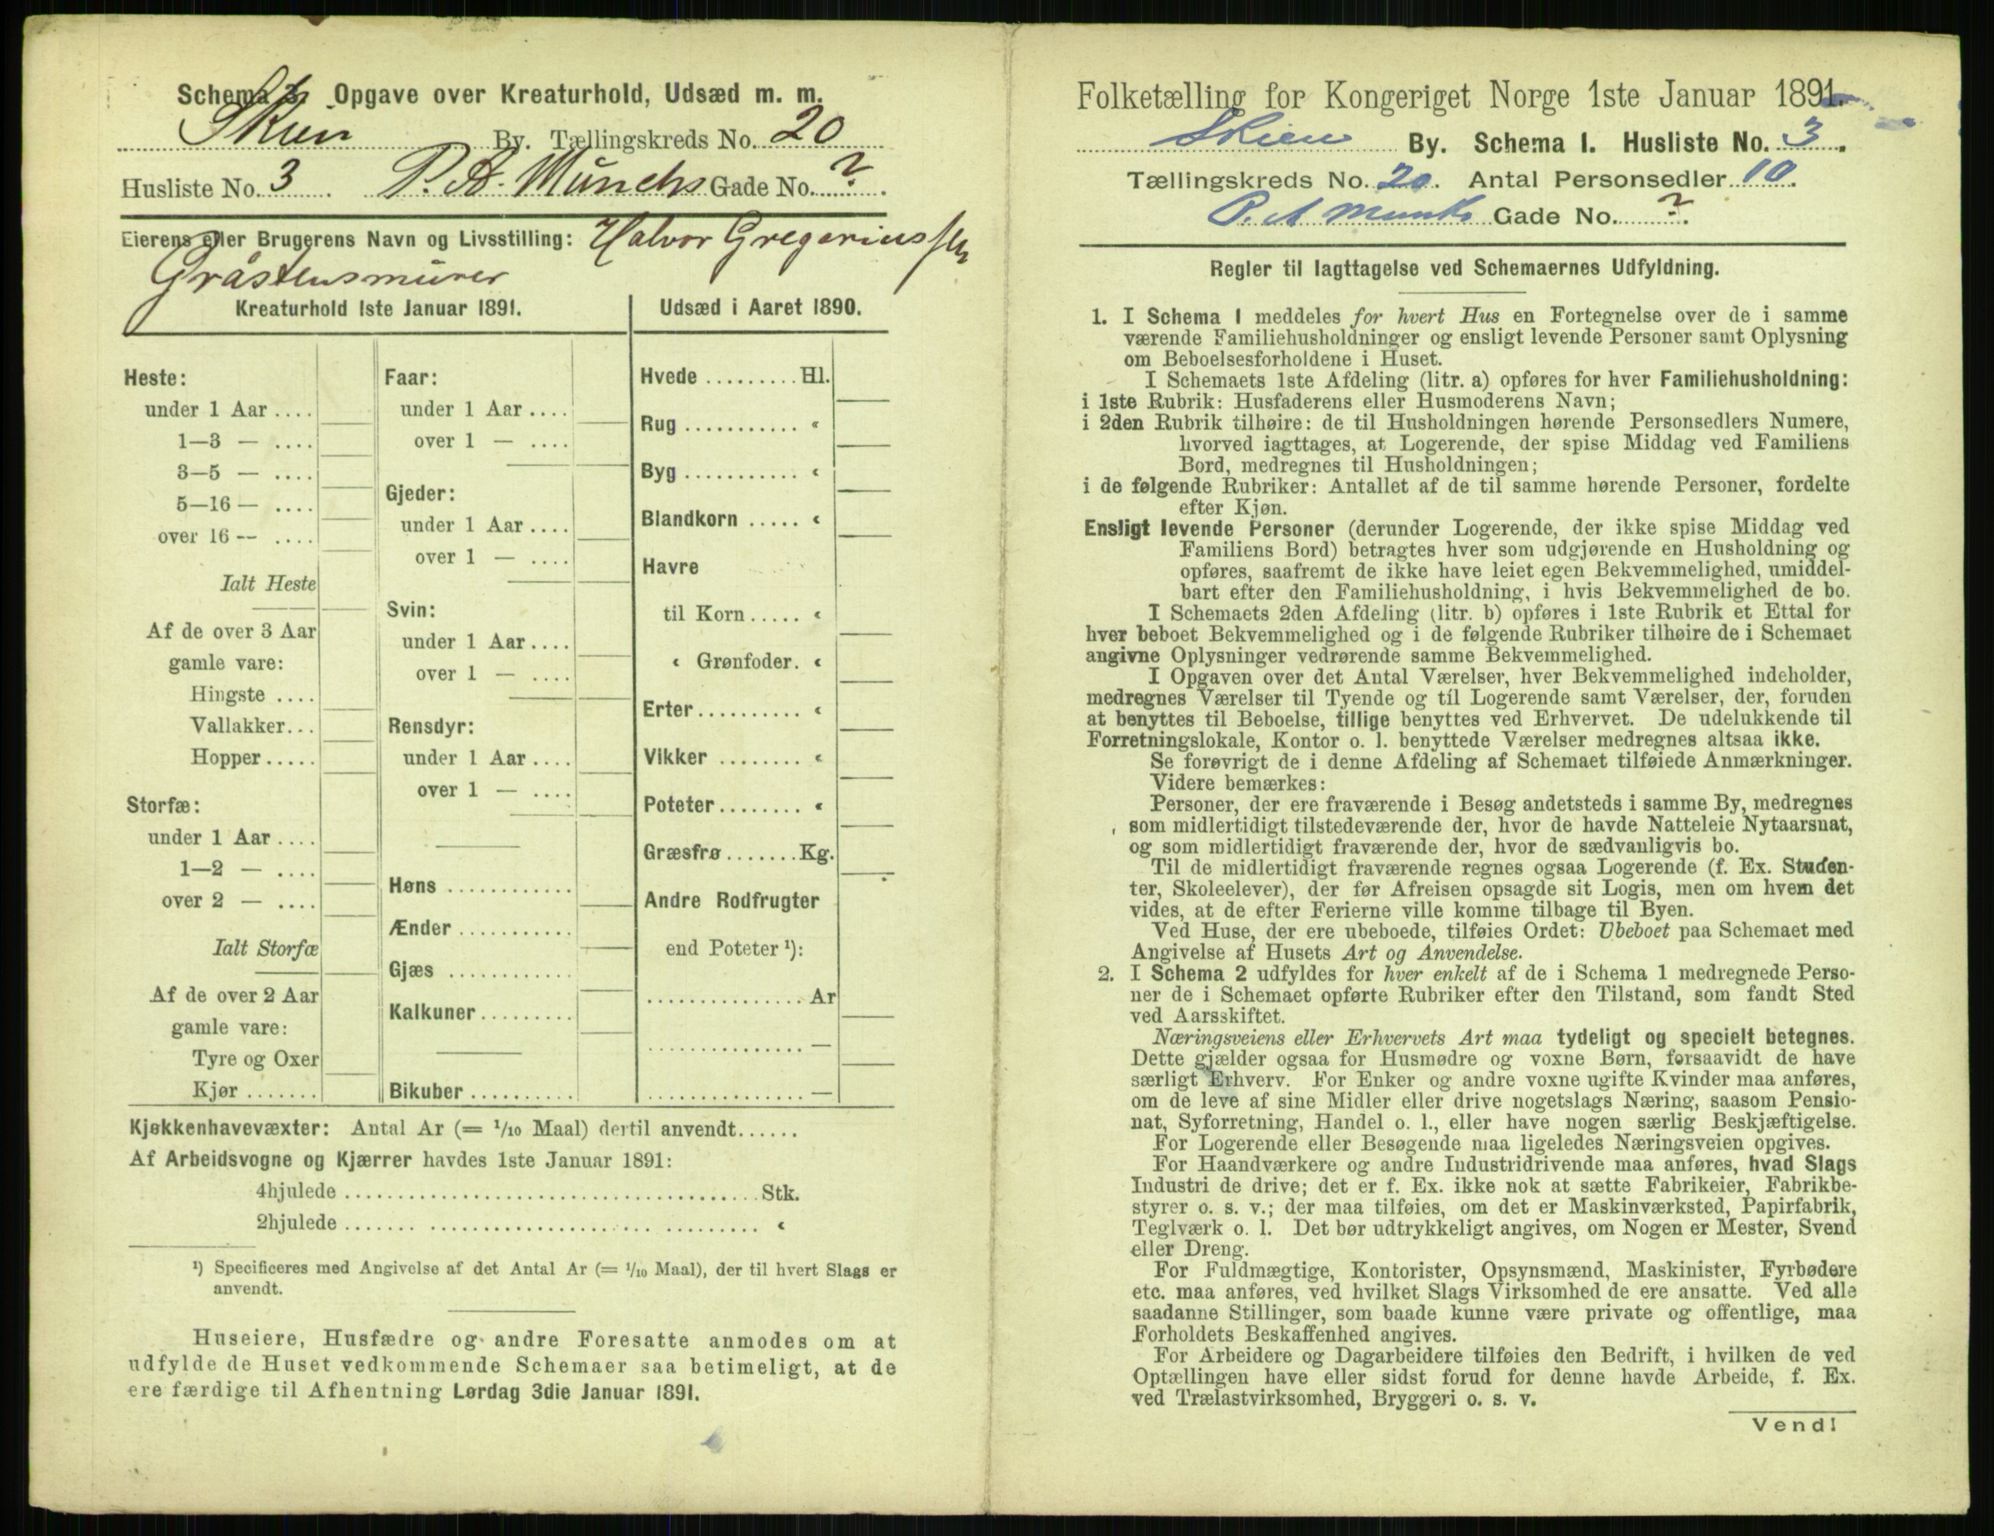 Schema 3. Opgave over Kreaturhold, Udsæd m. m.
Skien By. Tællingskreds No. 20
Husliste No. 3 P. A. Munchs Gade No. ?
Eierens eller Brugerens Navn og Livsstilling: Halvor Gregoriussen
Gråstensmurer
Kreaturhold 1ste Januar 1891.
Heste:
under 1 Aar ....
1—3 — ....
3—5 — ....
5—16 — ....
over 16 -- ....
Ialt Heste
Af de over 3 Aar
gamle vare:
Hingste ....
Vallakker...
Hopper .....
Storfæ:
under 1 Aar ....
1—2 — ....
over 2 — ....
Ialt Storfæ
Af de over 2 Aar
gamle vare:
Tyre og Oxer
Kjør .......
Faar:
under 1 Aar ....
over 1 — ....
Gjeder:
under 1 Aar ....
over 1 — ....
Svin:
under 1 Aar ....
over 1 — ....
Rensdyr:
under 1 Aar ....
over 1 — ....
Høns ............
Ænder ...........
Gjæs ............
Kalkuner .........
Bikuber ..........
Udsæd i Aaret 1890.
Hvede ......... Hl.
Rug ........... «
Byg ........... «
Blandkorn ..... «
Havre
til Korn ..... «
« Grønfoder. «
Erter .......... «
Vikker ........ «
Poteter ........ «
Græsfrø ....... Kg.
Andre Rodfrugter
end Poteter ¹):
............... Ar
............... —
............... —
Kjøkkenhavevæxter: Antal Ar (= 1/10 Maal) dertil anvendt ......
Af Arbeidsvogne og Kjærrer havdes 1ste Januar 1891:
4hjulede ....................................... Stk.
2hjulede ....................................... «
¹) Specificeres med Angivelse af det Antal Ar (= 1/10 Maal), der til hvert Slags er
anvendt.
Huseiere, Husfædre og andre Foresatte anmodes om at
udfylde de Huset vedkommende Schemaer saa betimeligt, at de
ere færdige til Afhentning Lørdag 3die Januar 1891.
Folketælling for Kongeriget Norge 1ste Januar 1891.
Skien By. Schema I. Husliste No. 3.
Tællingskreds No. 20. Antal Personsedler 10.
P. A Munks Gade No. ?.
Regler til Iagttagelse ved Schemaernes Udfyldning.
1. I Schema I meddeles for hvert Hus en Fortegnelse over de i samme
værende Familiehusholdninger og ensligt levende Personer samt Oplysning
om Beboelsesforholdene i Huset.
I Schemaets 1ste Afdeling (litr. a) opføres for hver Familiehusholdning:
i 1ste Rubrik: Husfaderens eller Husmoderens Navn;
i 2den Rubrik tilhøire: de til Husholdningen hørende Personsedlers Numere,
hvorved iagttages, at Logerende, der spise Middag ved Familiens
Bord, medregnes til Husholdningen;
i de følgende Rubriker: Antallet af de til samme hørende Personer, fordelte
efter Kjøn.
Ensligt levende Personer (derunder Logerende, der ikke spise Middag ved
Familiens Bord) betragtes hver som udgjørende en Husholdning og
opføres, saafremt de ikke have leiet egen Bekvemmelighed, umiddel-
bart efter den Familiehusholdning, i hvis Bekvemmelighed de bo.
I Schemaets 2den Afdeling (litr. b) opføres i 1ste Rubrik et Ettal for
hver beboet Bekvemmelighed og i de følgende Rubriker tilhøire de i Schemaet
angivne Oplysninger vedrørende samme Bekvemmelighed.
I Opgaven over det Antal Værelser, hver Bekvemmelighed indeholder,
medregnes Værelser til Tyende og til Logerende samt Værelser, der, foruden
at benyttes til Beboelse, tillige benyttes ved Erhvervet. De udelukkende til
Forretningslokale, Kontor o. l. benyttede Værelser medregnes altsaa ikke.
Se forøvrigt de i denne Afdeling af Schemaet tilføiede Anmærkninger.
Videre bemærkes:
Personer, der ere fraværende i Besøg andetsteds i samme By, medregnes
som midlertidigt tilstedeværende der, hvor de havde Natteleie Nytaarsnat,
og som midlertidigt fraværende der, hvor de sædvanligvis bo.
Til de midlertidigt fraværende regnes ogsaa Logerende (f. Ex. Studen-
ter, Skoleelever), der før Afreisen opsagde sit Logis, men om hvem det
vides, at de efter Ferierne ville komme tilbage til Byen.
Ved Huse, der ere ubeboede, tilføies Ordet: Ubeboet paa Schemaet med
Angivelse af Husets Art og Anvendelse.
2. I Schema 2 udfyldes for hver enkelt af de i Schema 1 medregnede Perso-
ner de i Schemaet opførte Rubriker efter den Tilstand, som fandt Sted
ved Aarsskiftet.
Næringsveiens eller Erhvervets Art maa tydeligt og specielt betegnes.
Dette gjælder ogsaa for Husmødre og voxne Børn, forsaavidt de have
særligt Erhverv. For Enker og andre voxne ugifte Kvinder maa anføres,
om de leve af sine Midler eller drive nogetslags Næring, saasom Pensio-
nat, Syforretning, Handel o. l., eller have nogen særlig Beskjæftigelse.
For Logerende eller Besøgende maa ligeledes Næringsveien opgives.
For Haandværkere og andre Industridrivende maa anføres, hvad Slags
Industri de drive; det er f. Ex. ikke nok at sætte Fabrikeier, Fabrikbe-
styrer o. s. v.; der maa tilføies, om det er Maskinværksted, Papirfabrik,
Teglværk o. l. Det bør udtrykkeligt angives, om Nogen er Mester, Svend
eller Dreng.
For Fuldmægtige, Kontorister, Opsynsmænd, Maskinister, Fyrbødere
etc. maa anføres, ved hvilket Slags Virksomhed de ere ansatte. Ved alle
saadanne Stillinger, som baade kunne være private og offentlige, maa
Forholdets Beskaffenhed angives.
For Arbeidere og Dagarbeidere tilføies den Bedrift, i hvilken de ved
Optællingen have eller sidst forud for denne havde Arbeide, f. Ex.
ved Trælastvirksomhed, Bryggeri o. s. v.
Vend!